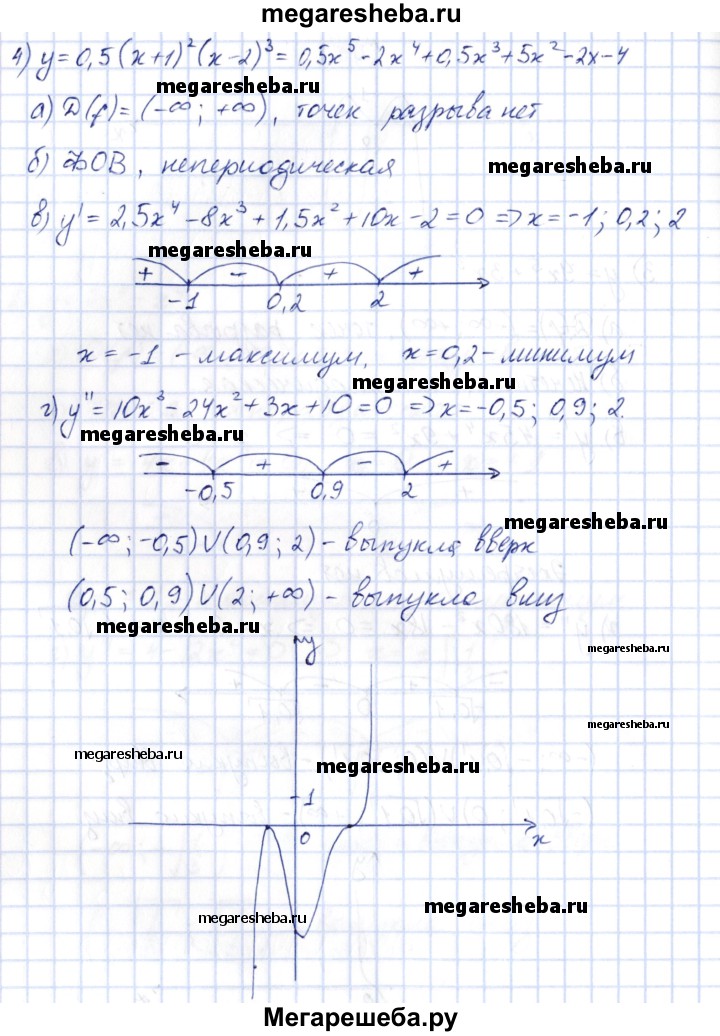 megaresheba.ru
4) y = 0,5(x+1)²(x-2)³ = 0,5x⁵ - 2x⁴ + 0,5x³ + 5x² - 2x - 4
megaresheba.ru
а) D(f) = (-∞; +∞), точек разрыва нет
б) ФОВ, непериодическая
megaresheba.ru
в) y' = 2,5x⁴ - 8x³ + 1,5x² + 10x - 2 = 0 => x = -1; 0,2; 2
megaresheba.ru
+ - + +
-1 0,2 2
x = -1 - максимум, x = 0,2 - минимум
megaresheba.ru
г) y'' = 10x³ - 24x² + 3x + 10 = 0 => x = -0,5; 0,9; 2.
megaresheba.ru
- + - +
-0,5 0,9 2
megaresheba.ru
(-∞; -0,5)∪(0,9; 2) - выпукла вверх
(0,5; 0,9)∪(2; +∞) - выпукла вниз
megaresheba.ru
y
megaresheba.ru
megaresheba.ru
megaresheba.ru
megaresheba.ru
1
0 x
megaresheba.ru
megaresheba.ru
Мегарешеба.ру